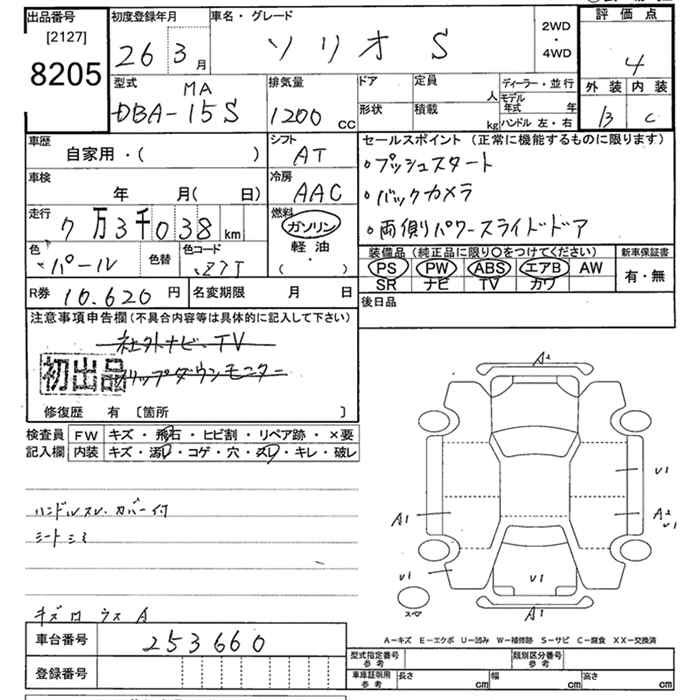 出品番号 初度登録年月 車名・グレード 2WD ・ 4WD 評価点
[2127] 8205
26年3月 ソリオ S 4
型式 MA 排気量 ドア 定員 人 ディーラー・並行 外装 内装
DBA-15S 1200 cc 形状 積載 kg モデル年式 年 ハンドル 左・右 B C
車歴 シフト セールスポイント (正常に機能するものに限ります)
自家用・( ) AT ・プッシュスタート
車検 冷房 ・バックカメラ
年 月( 日) AAC
走行 燃料 ・両側パワースライドドア
7万3千038km ガソリン
色 色替 色コード 軽油 装備品 (純正品に限り○をつけてください) 新車保証書
パール Z7T ( ・ ) PS PW ABS エアB AW 有・無
SR ナビ TV カワ
R券 10,620円 名変期限 月 日 後日品
注意事項申告欄 (不具合内容等は具体的に記入して下さい)
社外ナビ・TV
初出品 フリップダウンモニター
修復歴 有 〔箇所 〕
検査員 FW キズ・飛石・ヒビ割・リペア跡・×要
記入欄 内装 キズ・汚レ・コゲ・穴・スレ・キレ・破レ
A2
U1
ハンドルスレ・カバー付 A1 A2 U1
シートシミ
U1 U1
スペア A1
A-キズ E-エクボ U-凹み W-補修跡 S-サビ C-腐食 XX-交換済
車台番号 253660
型式指定番号 参考 類別区分番号 参考
登録番号 車庫証明用 参考 長さ cm 幅 cm 高さ cm